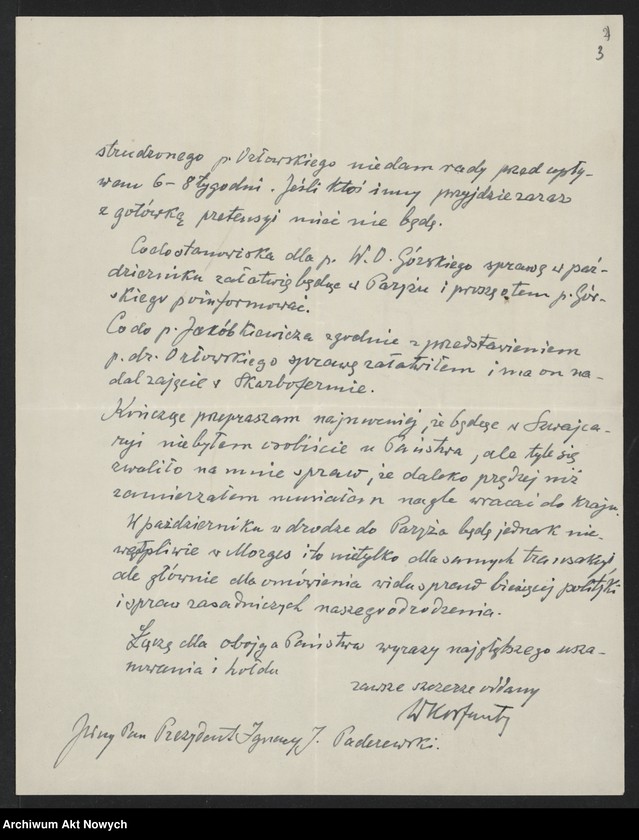 2
3
strudzonego p. Orłowskiego nie dam rady przed upły-
wem 6-8 tygodni. Jeśli ktoś inny przyjdzie zaraz
z gotówką pretensyi mieć nie będę.
Co do stanowiska dla p. W. O. Górskiego sprawę w paź-
dzierniku załatwię będąc w Paryżu i proszę o tem p. Gór-
skiego poinformować.
Co do p. Jakóbkiewicza zgodnie z przedstawieniem
p. dr. Orłowskiego sprawę załatwiłem i ma on na-
dal zajęcie w Skarbofermie.
Kończąc przepraszam najmocniej, że będąc w Szwajca-
ryi nie byłem osobiście u Państwa, ale tyle się
zwaliło na mnie spraw, że daleko prędzej niż
zamierzałem musiałem nagle wracać do kraju.
W październiku w drodze do Paryża będę jednak nie-
wątpliwie w Morges i to nietylko dla samych transakcyi
ale głównie dla omówienia wielu spraw bieżącej polityki
i spraw zasadniczych naszego odrodzenia.
Łączę dla obojga Państwa wyrazy najgłębszego usza-
nowania i hołdu
zawsze szczerze oddany
WKorfanty
JWny Pan Prezydent Ignacy J. Paderewski.
Archiwum Akt Nowych